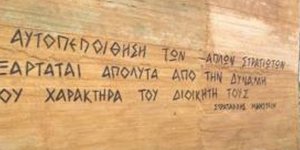 ΑΥΤΟΠΕΠΟΙΘΗΣΗ ΤΩΝ ΑΠΛΩΝ ΣΤΡΑΤΙΩΤΩΝ
ΕΞΑΡΤΑΤΑΙ ΑΠΟΛΥΤΑ ΑΠΟ ΤΗΝ ΔΥΝΑΜΗ
ΟΥ ΧΑΡΑΚΤΗΡΑ ΤΟΥ ΔΙΟΙΚΗΤΗ ΤΟΥΣ
ΣΤΡΑΤΑΡΧΗΣ